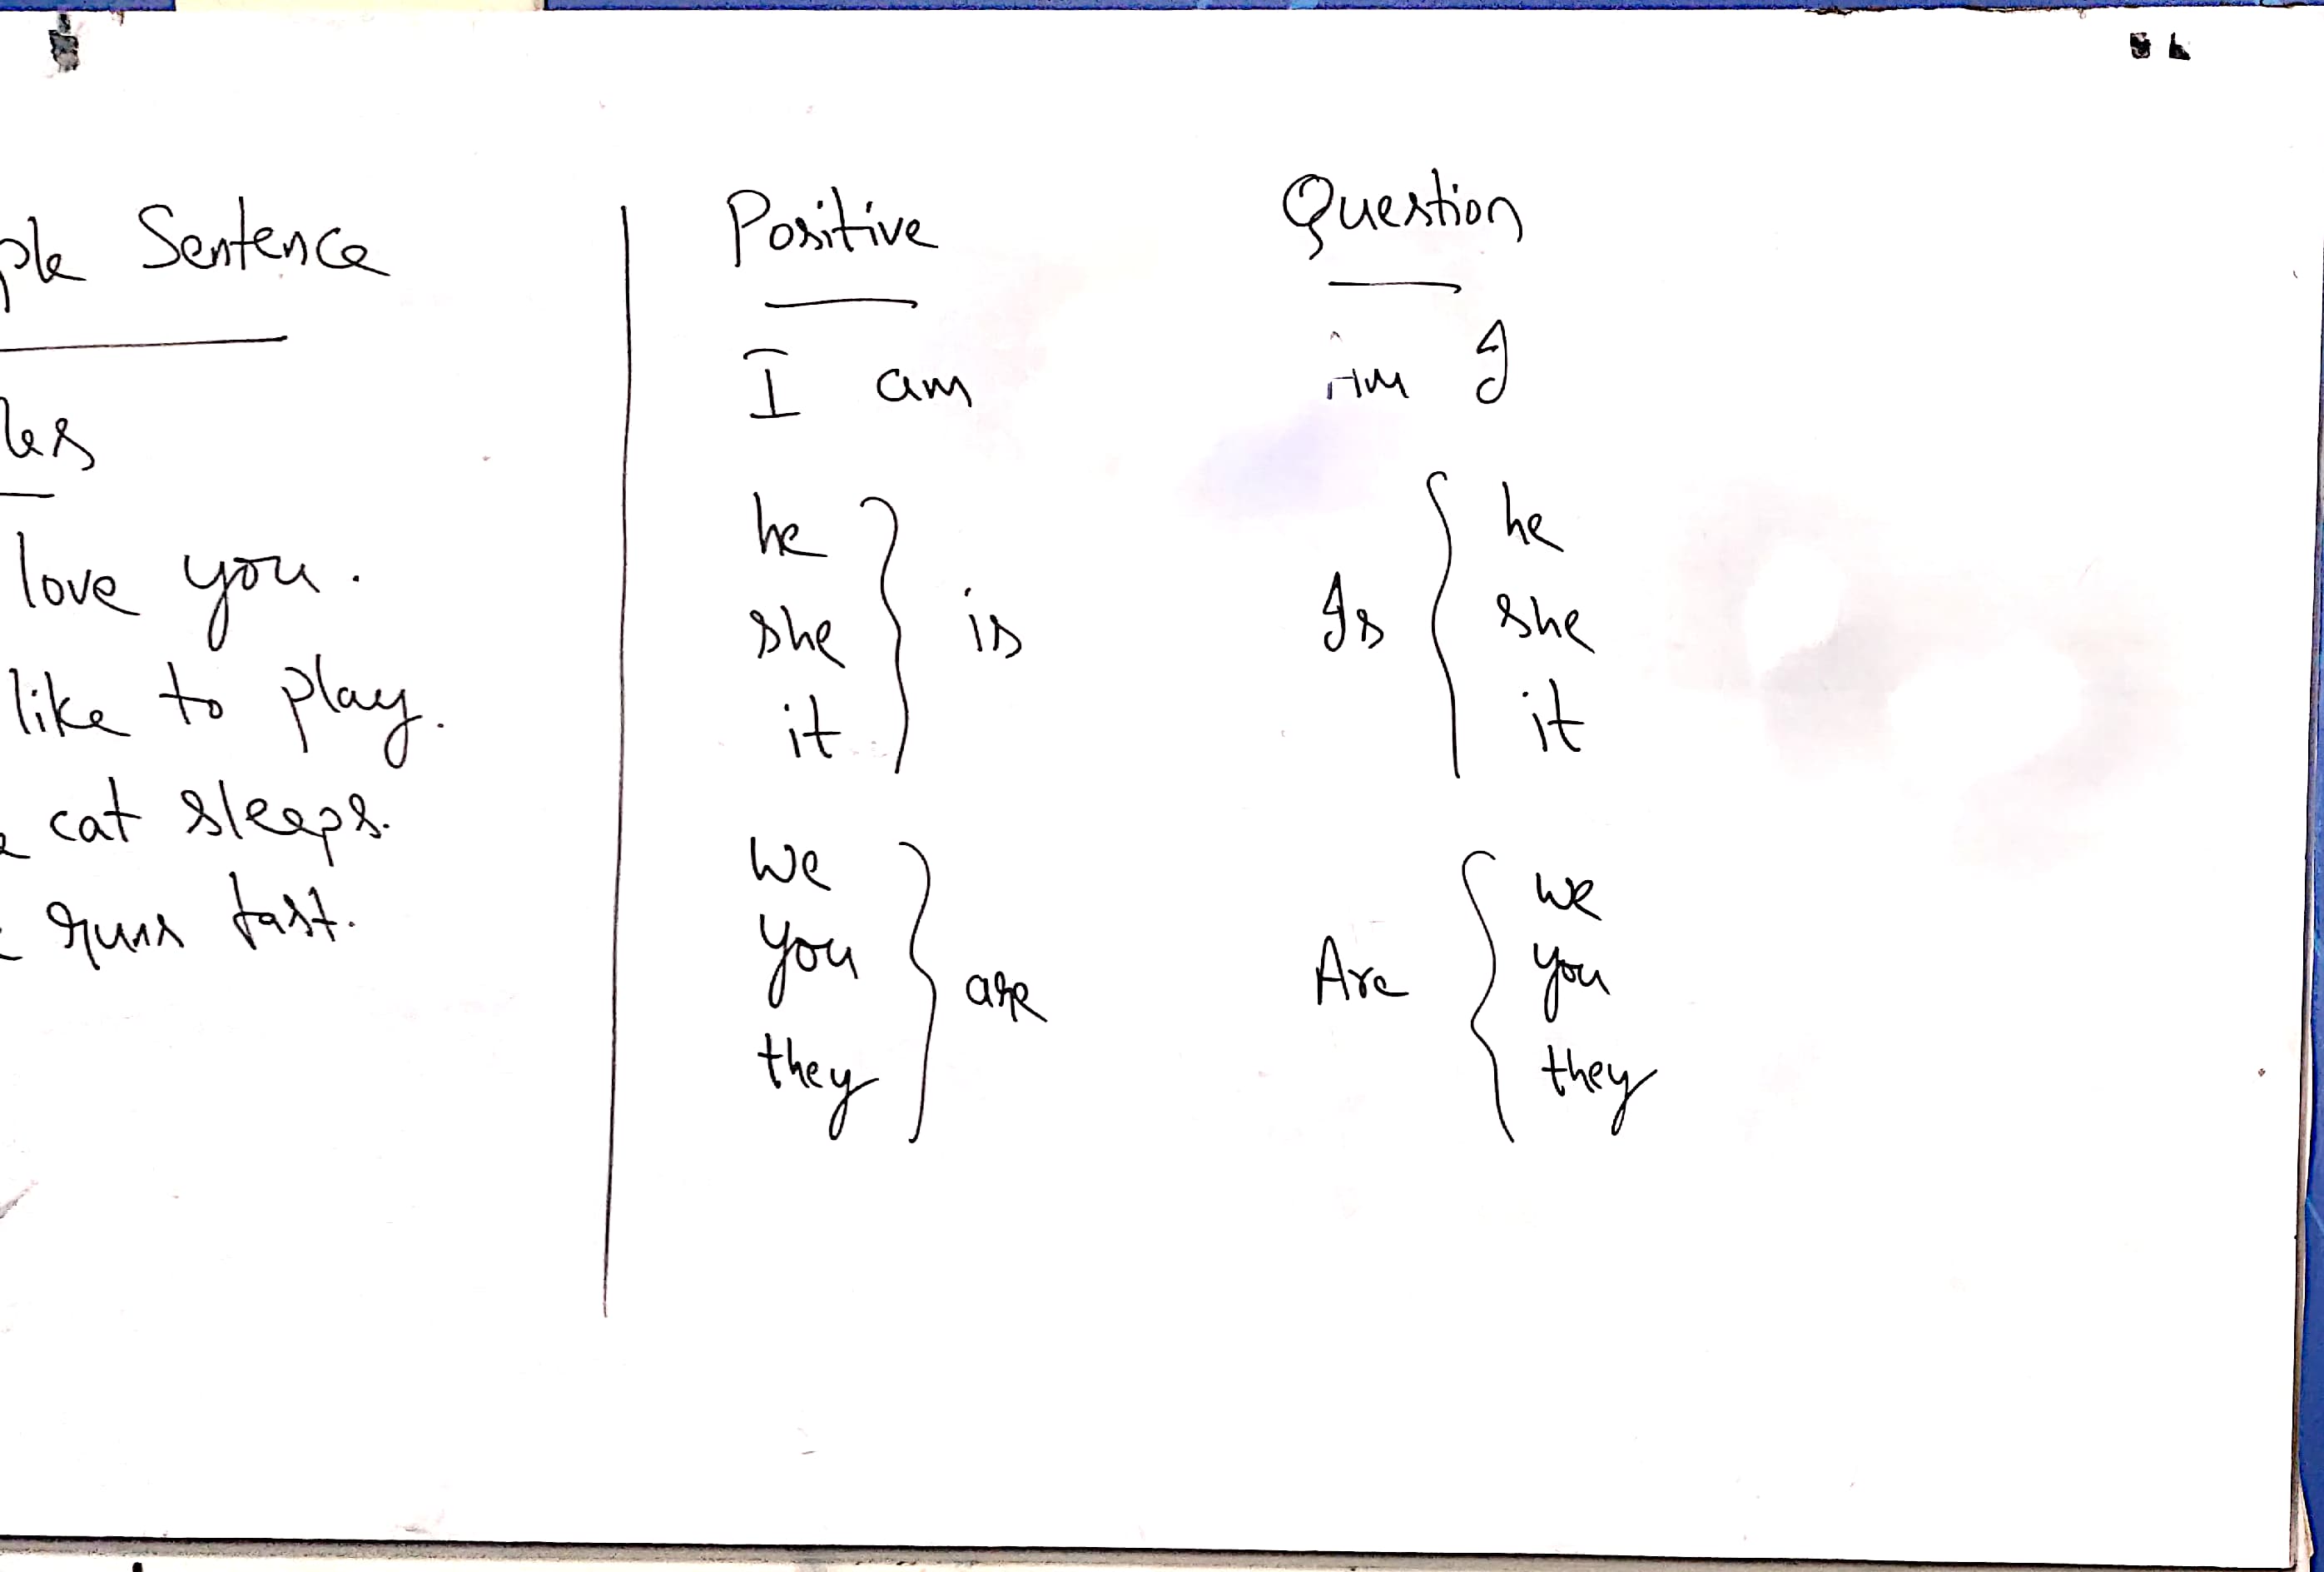 Sentence
love you.
like to play.
cat sleeps.
runs fast.
Positive
I am
he
she
it
is
we
you
they
are
Question
Am I
Is
he
she
it
Are
we
you
they